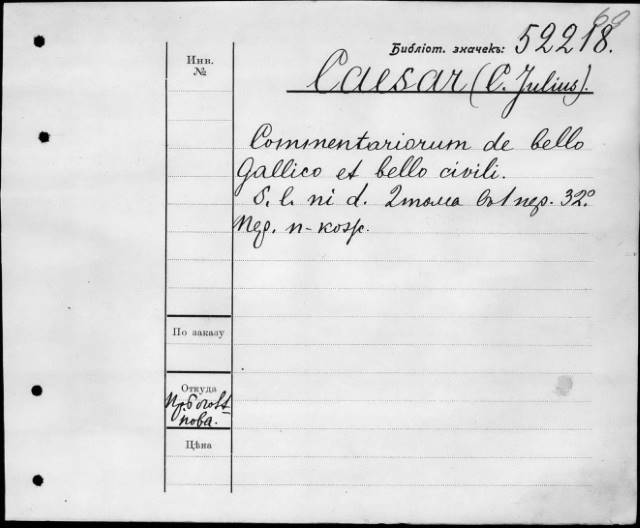 60
Библіот. значекъ: 52218.
Инв.
№
Caesar (C. Julius).
Commentariorum de bello
Gallico et bello civili.
S. l. ni d. 2 тома въ 1 пер. 32º
Пер. п-кож.
По заказу
Откуда
Цѣна